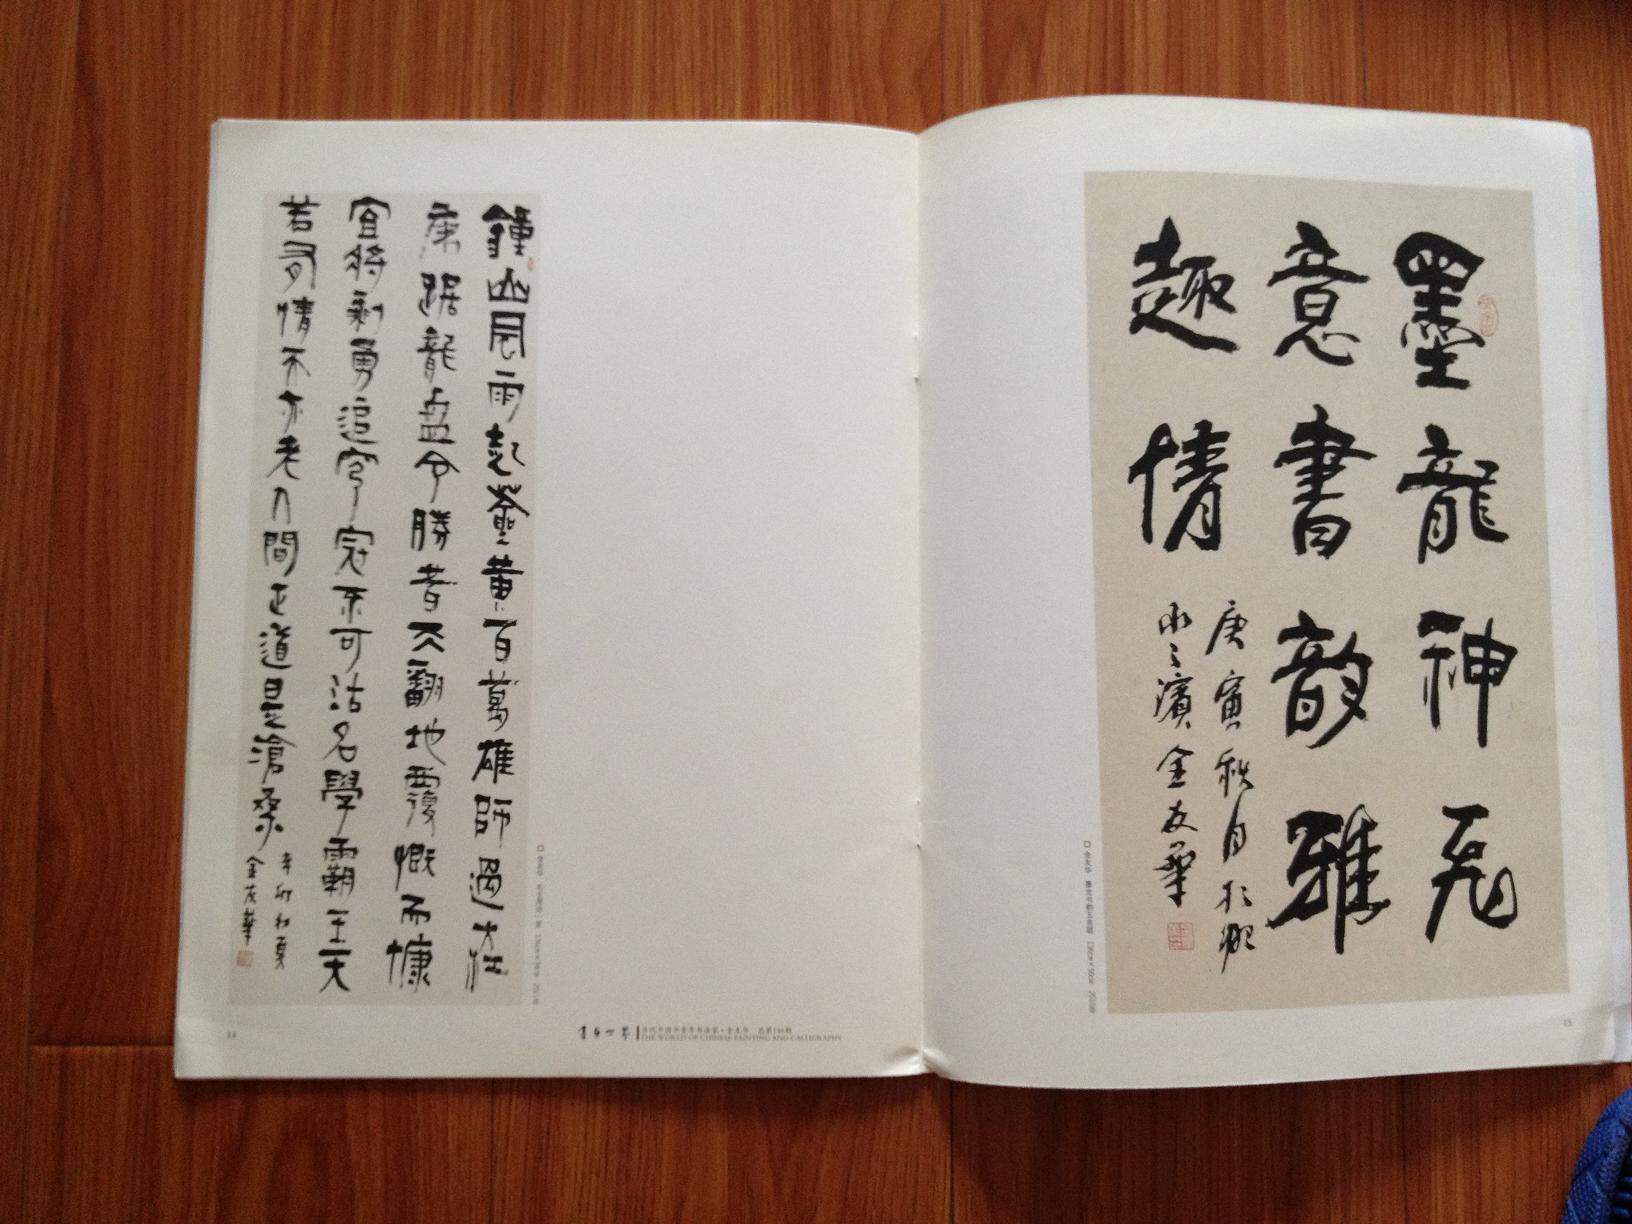 鍾山風雨起蒼黃百萬雄師過大江
虎踞龍盤今勝昔天翻地覆慨而慷
宜將剩勇追窮寇不可沽名學霸王天
若有情天亦老人間正道是滄桑
辛卯初夏
金友華
14
書畫世界
当代中国中青年书法家·金友华
THE WORLD OF CHINESE PAINTING AND CALLIGRAPHY
墨龍神飛
意書韵雅
趣情
庚寅秋月於淝
水之濱金友華
15